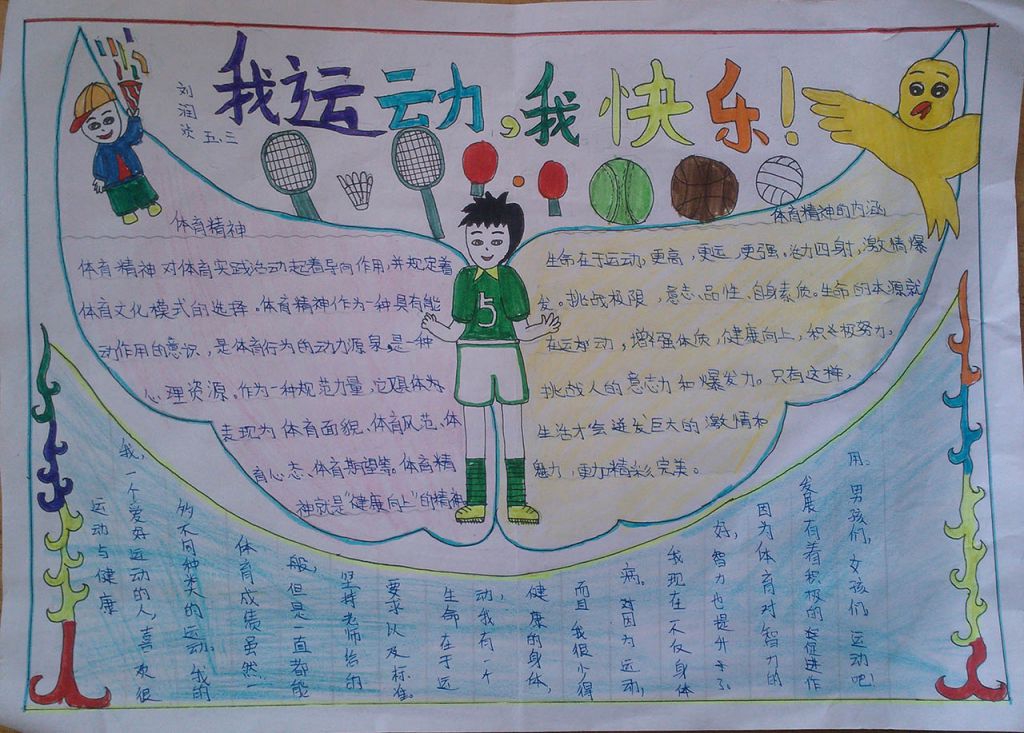 我运动,我快乐!
刘润欢
五、三
体育精神
体育精神对体育实践活动起着导向作用,并规定着
体育文化模式的选择。体育精神作为一种具有能
动作用的意识,是体育行为的动力源泉,是一种
心理资源。作为一种规范力量,它具体为
表现为体育面貌、体育风范、体
育心态、体育期望等。体育精
神就是“健康向上”的精神
体育精神的内涵
生命在于运动,更高,更远,更强。活力四射,激情爆
发。挑战极限,意志、品性、自身素质。生命的本源就
在运动,增强体质,健康向上,积极努力,
挑战人的意志力和爆发力。只有这样,
生活才会迸发巨大的激情和
魅力,更加精彩完美。
5
运动与健康
我,一个爱好运动的人,喜欢很
多不同种类的运动。我的
体育成绩虽然一
般,但是一直都能
坚持老师给的
要求以及标准。
生命在于运
动,我有一个
健康的身体,
而且我很少得
病。难因为运动,
我现在不仅身体
好,智力也提升了。
因为体育对智力的
发展有着积极的促进作
用。男孩们,女孩们。运动吧!